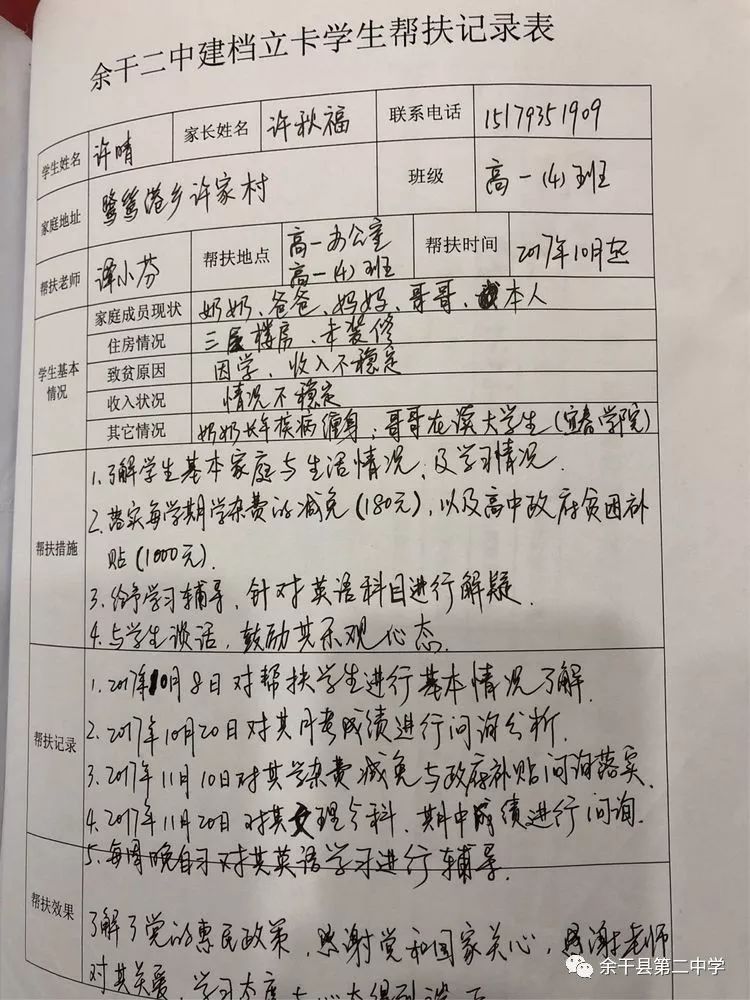 余干二中建档立卡学生帮扶记录表
学生姓名 许晴 家长姓名 许秋福 联系电话 15179351909
家庭地址 鹭鸶港乡许家村 班级 高一(4)班
帮扶老师 谭小芬 帮扶地点 高一办公室 高一(4)班 帮扶时间 2017年10月起
学生基本情况
家庭成员现状 奶奶、爸爸、妈妈、哥哥、本人
住房情况 三层楼房、未装修
致贫原因 因学、收入不稳定
收入状况 情况不稳定
其它情况 奶奶长年疾病缠身;哥哥在读大学生(宜春学院)
帮扶措施
1.了解学生基本家庭与生活情况,及学习情况.
2.落实每学期学杂费的减免(180元),以及高中政府贫困补
贴(1000元).
3.给予学习辅导,针对英语科目进行解疑.
4.与学生谈话,鼓励其乐观心态.
帮扶记录
1.2017年10月8日对帮扶学生进行基本情况了解.
2.2017年10月20日对其月考成绩进行问询分析.
3.2017年11月10日对其学杂费减免与政府补贴问询落实.
4.2017年11月20日对其文理分科、期中成绩进行问询.
5.每周晚自习对其英语学习进行辅导.
帮扶效果
了解了党的惠民政策,感谢党和国家关心,感谢老师
对其关爱,学习态度与心态得到
余干县第二中学